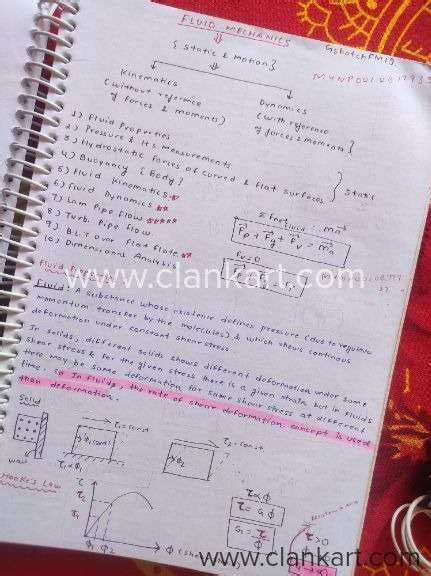 FLUID MECHANICS
{Static & Motion}
Kinematics
(without reference
of forces & moments)
Dynamics
(with reference
of forces & moments)
1) Fluid Properties
2) Pressure & its Measurements
3) Hydrostatic forces of curved & flat surfaces
4) Buoyancy {Body}
} Static
5) Fluid Kinematics *
6) Fluid Dynamics **
7) Lam Pipe Flow *****
8) Turb. Pipe Flow
9) B.L over Flat Plate **
10) Dimensional Analysis
www.clankart.com
Fluid: A substance whose existence defines pressure (due to regular
momentum transfer by the molecules) & which shows continous
deformation under constant shear stress
In solids, different solids shows different deformation under same
shear stress & for the given stress there is a given strain but in fluids
there may be some deformation for same shear stress at different
time. So In fluids, the rate of shear deformation concept is used
than deformation.
Solid
wall
Hooke's Law
τ
φ1 φ2
τ α φ
τ = G φ
www.clankart.com